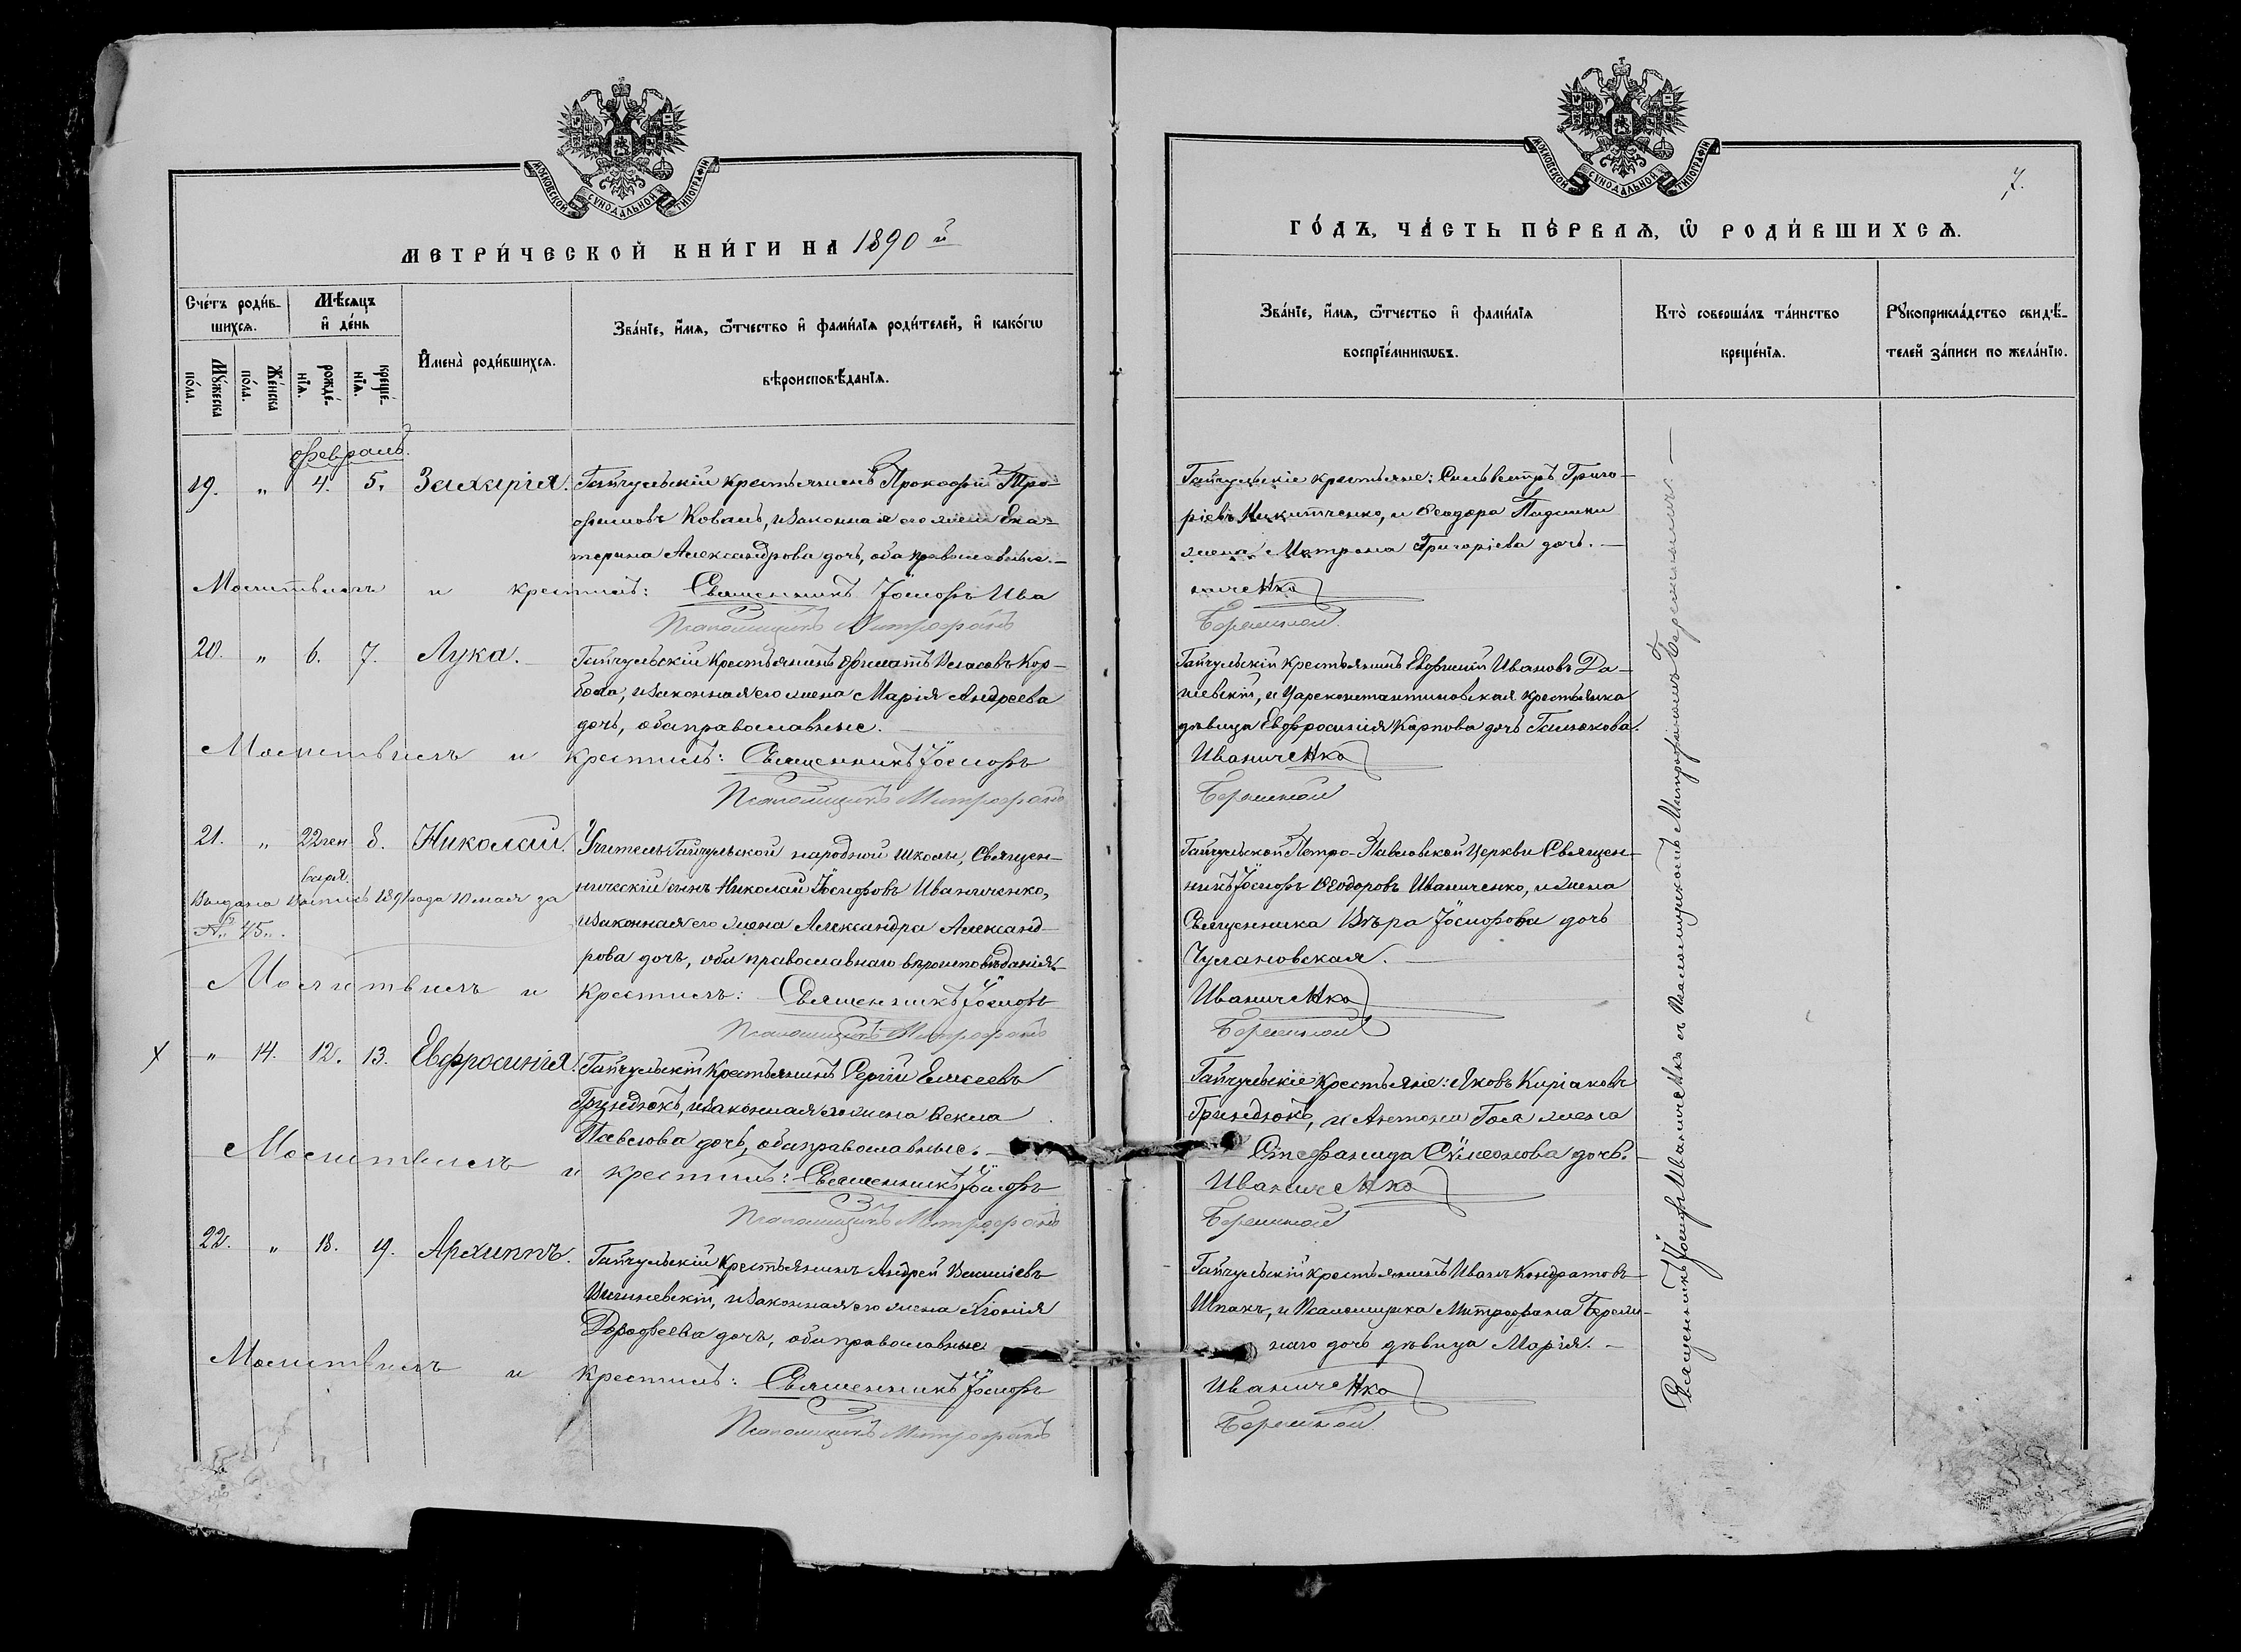 МОСКОВСКОЙ СѴНОДАЛЬНОЙ ТИПОГРАФІИ
МЕТРИ́ЧЕСКОЙ КНИ́ГИ НА 1890 й
Сче́тъ роди́вшихсѧ.
Мꙋ́жеска по́ла.
Же́нска по́ла.
Мѣ́сѧцъ и҆ де́нь
рожде́нїѧ.
креще́нїѧ.
И҆мена̀ роди́вшихсѧ.
Зва́нїе, и҆́мѧ, ѻ҆́тчество и҆ фами́лїѧ роди́телей, и҆ како́гѡ
вѣроисповѣ́данїѧ.
февраль.
19. " 4. 5. Захарія. Гайчульскій крестьянинъ Прокофій Тро-
фимовъ Коваль, и законная его жена Ека-
терина Александрова дочь, оба православные.
Молитвилъ и крестилъ: Священникъ Іосифъ Ива
Псаломщикъ Митрофанъ
20. " 6. 7. Лука. Гайчульскій крестьянинъ Филатъ Власовъ Кор-
бола, и законная его жена Марія Андреева
дочь, оба православные.
Молитвилъ и крестилъ: Священникъ Іосифъ
Псаломщикъ Митрофанъ
21. " 22 ген варя. 8. Николай. Учитель Гайчульской народной школы, Священ-
ническій сынъ Николай Іосифовъ Иваниченко,
и законная его жена Александра Александ-
рова дочь, оба православнаго вѣроисповѣданія.
Выдана выпись 1891 года 10 мая за
№ 45.
Молитвилъ и крестилъ: Священникъ Іосифъ
Псаломщикъ Митрофанъ
х " 14. 12. 13. Евфросинія. Гайчульскій крестьянинъ Сергій Елисеевъ
Гриндюкъ, и законная его жена Ѳекла
Павлова дочь, оба православные.
Молитвилъ и крестилъ: Священникъ Іосифъ
Псаломщикъ Митрофанъ
22. " 18. 19. Архиппъ. Гайчульскій крестьянинъ Андрей
и законная его жена Хіонія
Дорофеева дочь, оба православные
Молитвилъ и крестилъ: Священникъ Іосифъ
Псаломщикъ Митрофанъ
МОСКОВСКОЙ СѴНОДАЛЬНОЙ ТИПОГРАФІИ
7.
ГО́ДЪ, ЧА́СТЬ ПЕ́РВАѦ, Ѡ҆ РОДИ́ВШИХСѦ.
Зва́нїе, и҆́мѧ, ѻ҆́тчество и҆ фами́лїѧ
воспрїе́мникѡвъ.
Кто̀ соверша́лъ та́инство
креще́нїѧ.
Рꙋкоприкла́дство свидѣ́-
телей за́писи по жела́нїю.
Гайчульскіе крестьяне: Сильвестръ Григо-
ріевъ Никитченко, и Ѳеодора
жена Матрона Григоріева дочь.
ниченко
Бережной.
Гайчульскій крестьянинъ Евфимій Ивановъ Да-
невскій, и Цареконстантиновская крестьянка
дѣвица Евфросинія Карпова дочь
Иваниченко
Бережной
Гайчульской Петро-Павловской Церкви Священ-
никъ Іосифъ Ѳеодоровъ Иваниченко, и жена
Священника Вѣра Іосифова дочь
Чулановская.
Иваниченко
Бережной
Гайчульскіе крестьяне: Яковъ Киріаковъ
Гриндюкъ, и Антона Гоя жена
Стефанида Сѵмеонова дочь.
Иваниченко
Бережной
Гайчульскій крестьянинъ Иванъ Кондратовъ
Шпакъ, и Псаломщика Митрофана Береж-
наго дочь дѣвица Марія.
Иваниченко
Бережной
Священникъ Іосифъ Иваниченко съ Псаломщикомъ Митрофаномъ Бережнымъ.